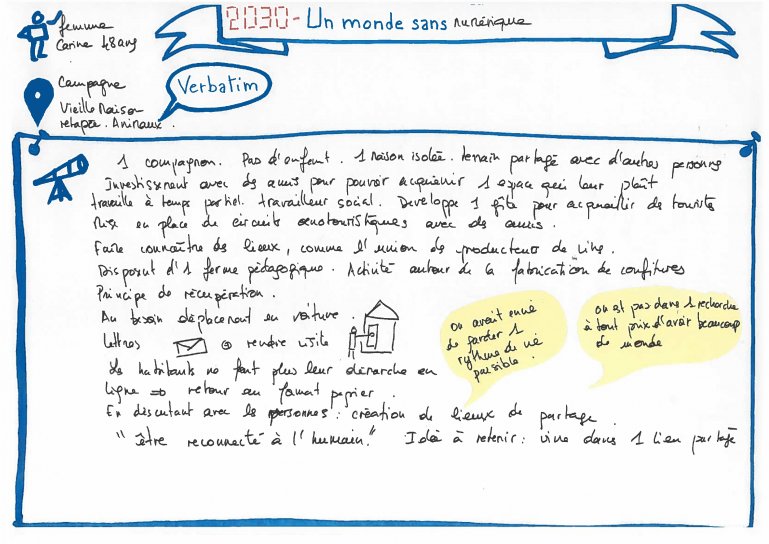 2030 - Un monde sans numérique
femme
Carine 48 ans
Campagne
Vieille Maison
retapée. Animaux.
Verbatim
1 compagnon. Pas d'enfant. 1 maison isolée. terrain partagé avec d'autres personnes
Investissement avec des amis pour pouvoir acquérir 1 espace qui leur plaît
travaille à temps partiel. travailleur social. Developpe 1 gîte pour accueillir de touristes
Mise en place de circuits œnotouristiques avec des amis.
Faire connaître des lieux, comme l'union de producteurs de vins.
Disposent d'1 ferme pédagogique. Activité autour de la fabrication de confitures
Principe de récupération.
Au besoin déplacement en voiture.
lettres @ rendre visite
Les habitants ne font plus leur démarche en
ligne => retour au format papier.
En discutant avec les personnes : création de lieux de partage.
"être reconnecté à l'humain." Idée à retenir : vivre dans 1 lieu partagé
on avait envie
de garder 1
rythme de vie
paisible.
on est pas dans 1 recherche
à tout prix d'avoir beaucoup
de monde